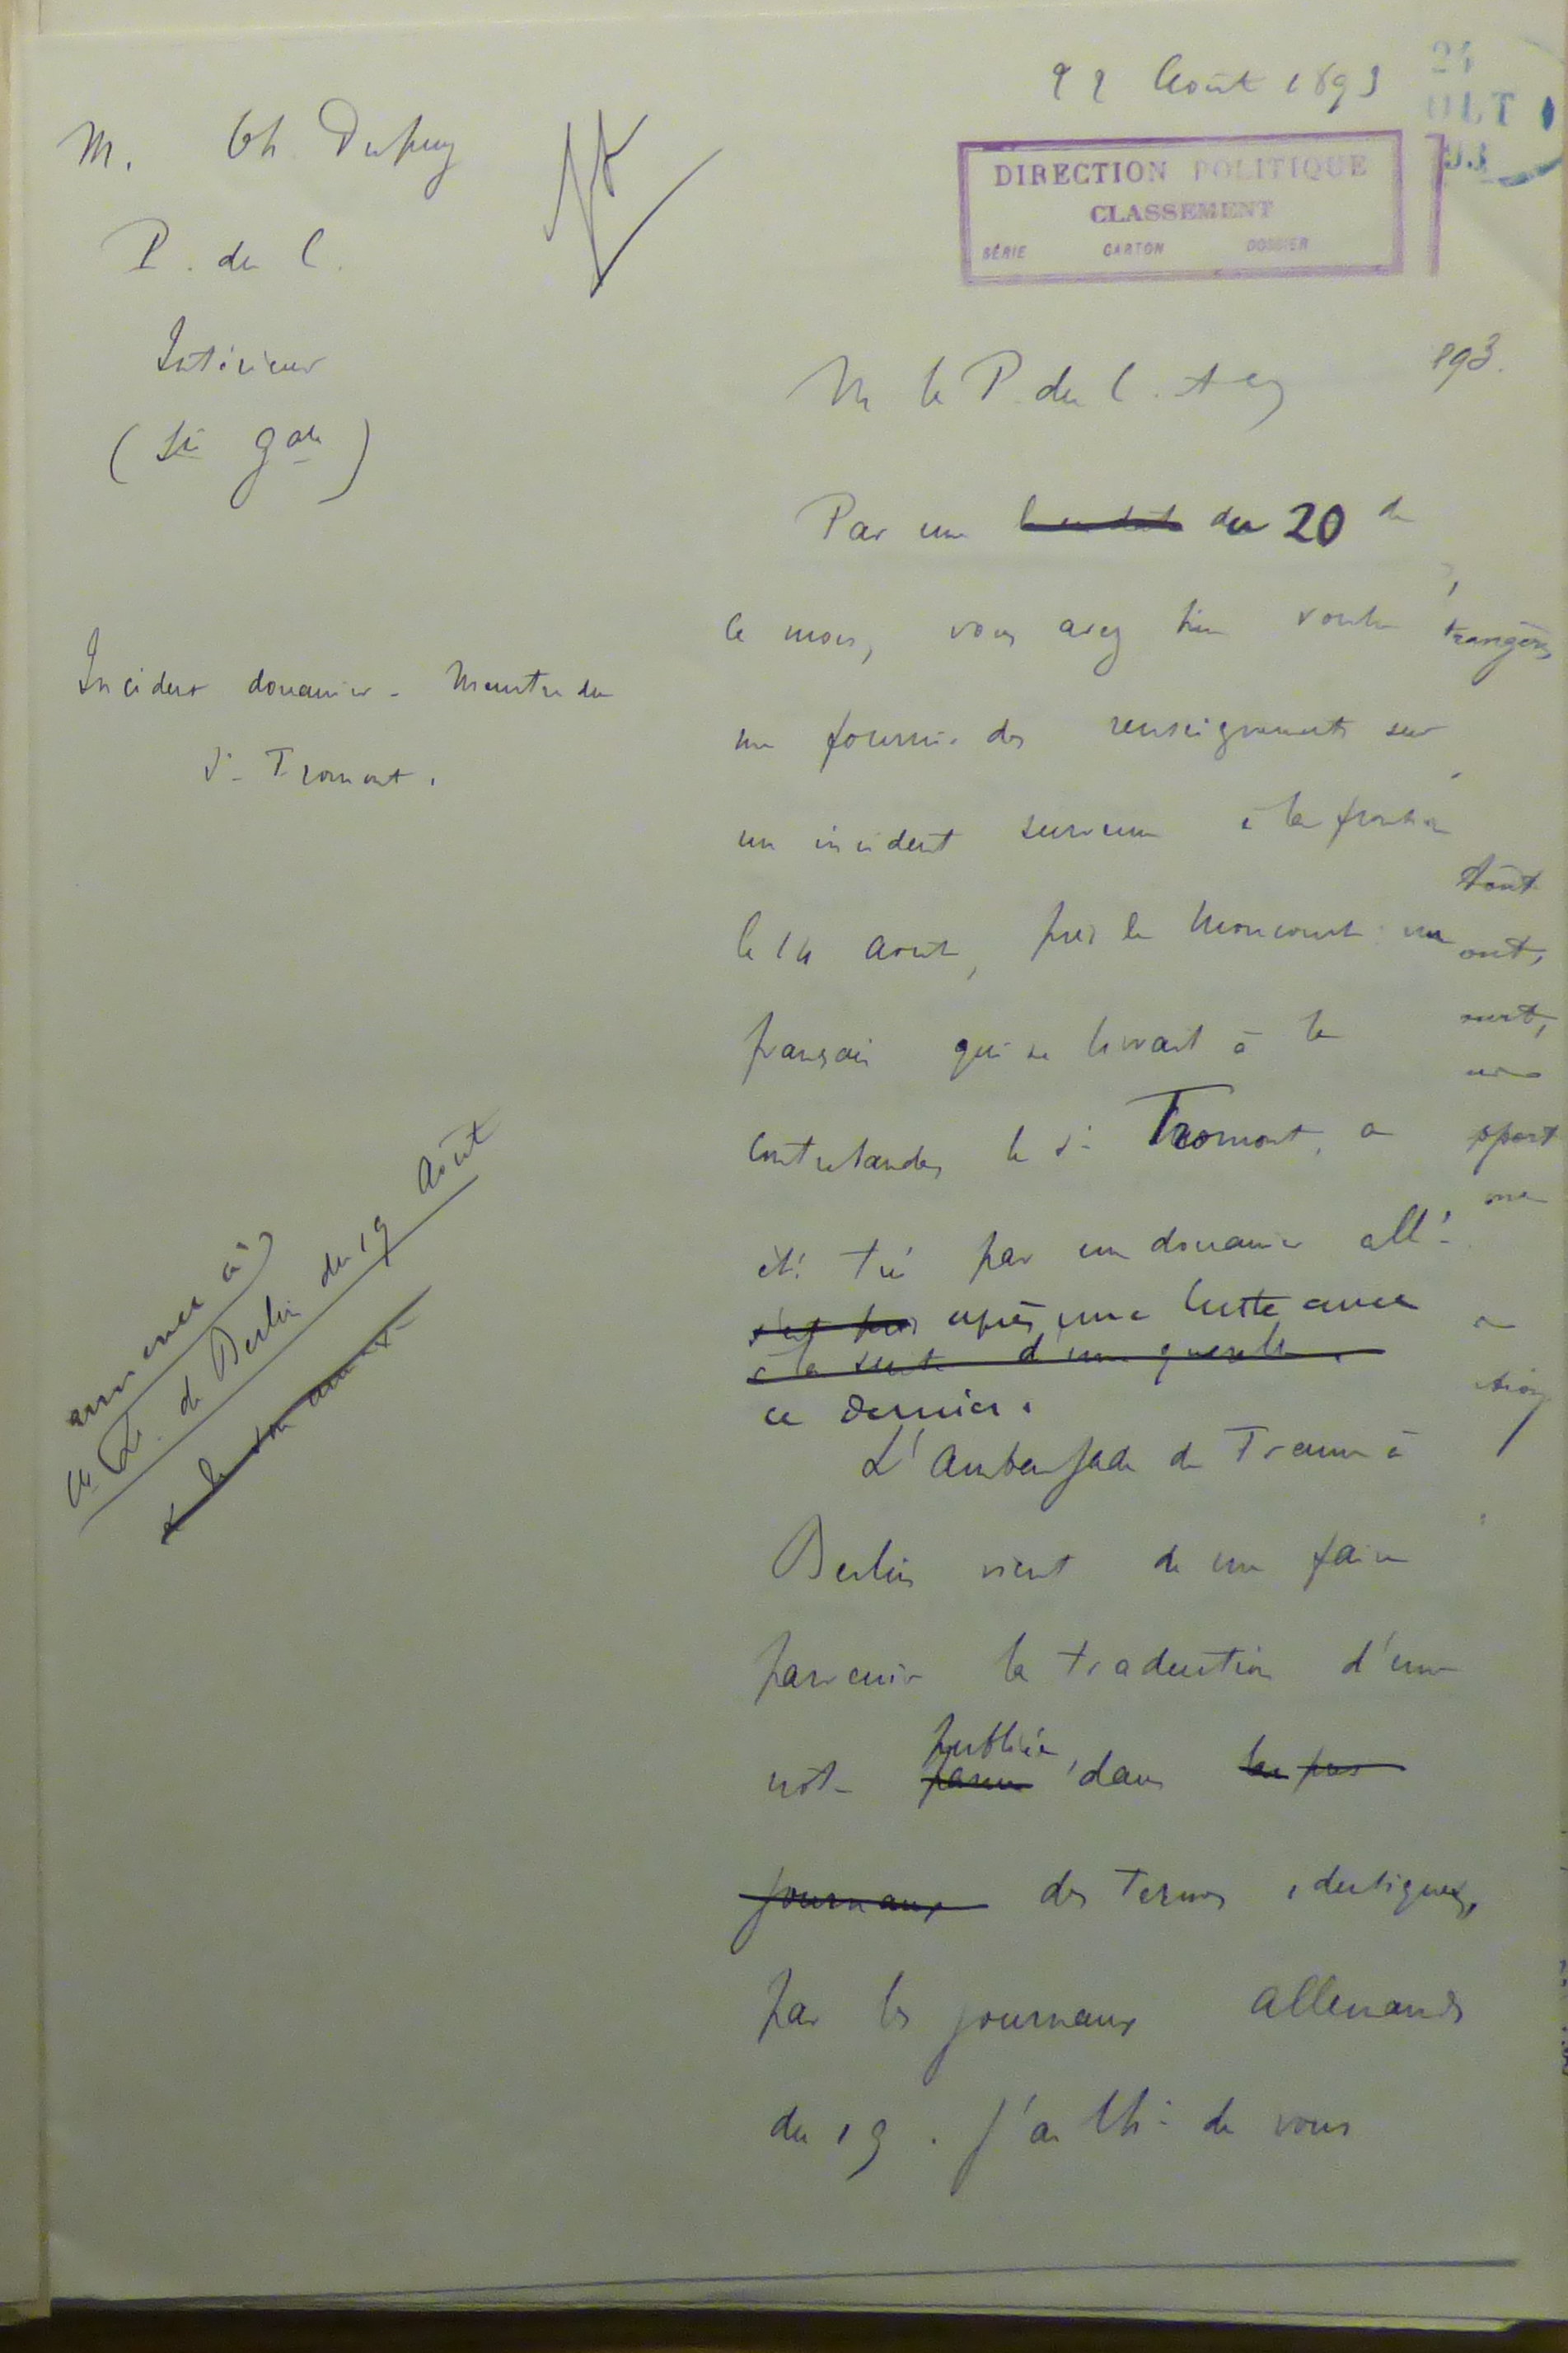 22 Août 1893
24
OCT
93
DIRECTION POLITIQUE
CLASSEMENT
SÉRIE CARTON DOSSIER
M. Ch Dupuy
P. du C.
Intérieur
(Sté gale)
Incident douanier - Meurtre du
Sr Tromont.
annexer à
la L. de Berlin du 19 Août
893.
M le P. du C. et
Par une du 20 de
ce mois, vous avez bien voulu
me fournir des renseignements sur
un incident survenu à la frontière
le 14 août, près de Moncourt un
français qui se livrait à la
contrebande, le Sr Tromont, a
été tué par un douanier all.
s'est après une lutte avec
à la suite d'une querelle.
ce dernier.
L'Ambassade de France à
Berlin vient de me faire
parvenir la traduction d'une
publiée
note parue dans
journaux des termes identiques,
par les journaux allemands
du 19. J'ai l'h. de vous
trangères
tout
ont,
ourt,
pport